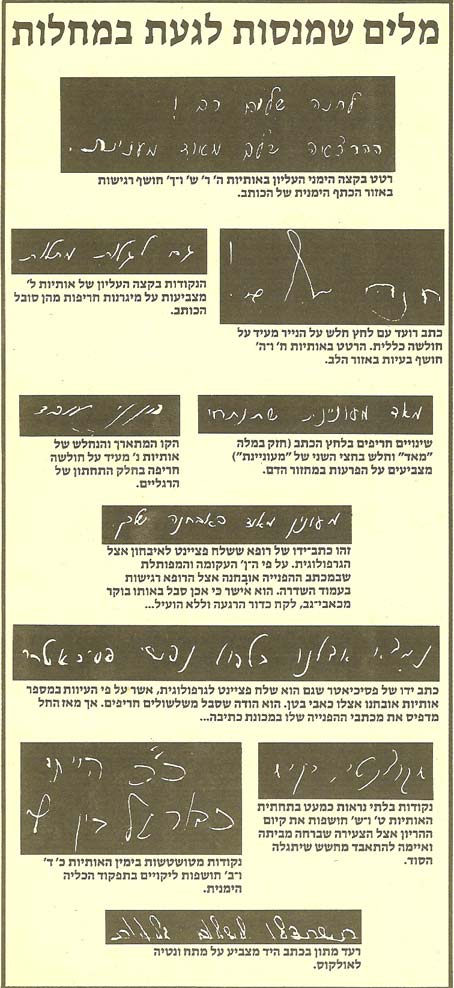 מלים שמנסות לגעת במחלות
לחנה שלום רב !
ההרצאה שלך מאוד מענינת.
רטט בקצה הימני העליון באותיות ה' ר' ש' ו־ך' חושף רגישות
באזור הכתף הימנית של הכותב.
חנה
כתב רועד עם לחץ חלש על הנייר מעיד על
חולשה כללית. הרטט באותיות ח' ו־ה'
חושף בעיות באזור הלב.
גם לגלות מחלות
הנקודות בקצה העליון של אותיות ל'
מצביעות על מיגרנות חריפות מהן סובל
הכותב.
מאד מעוניינת שתנתחי
שינויים חריפים בלחץ הכתב (חזק במלה
"מאד" וחלש בחצי השני של "מעוניינת")
מצביעים על הפרעות במחזור הדם.
הקו המתארך והנחלש של
אותיות נ' מעיד על חולשה
חריפה בחלק התחתון של
הרגליים.
מעונין מאוד באבחנה שלך.
זהו כתב־ידו של רופא ששלח פציינט לאיבחון אצל
הגרפולוגית. על פי ה־ן' העקומה והמפותלת
שבמכתב ההפנייה אובחנה אצל הרופא רגישות
בעמוד השדרה. הוא אישר כי אכן סבל באותו בוקר
מכאבי־גב, לקח כדור הרגעה וללא הועיל...
נפשי פסיכיאטרי
כתב ידו של פסיכיאטר שגם הוא שלח פציינט לגרפולוגית, אשר על פי העיוות במספר
אותיות אובחנו אצלו כאבי בטן. הוא הודה שסבל משלשולים חריפים. אך מאז החל
מדפיס את מכתבי ההפנייה שלו במכונת כתיבה...
נקודות בלתי נראות כמעט בתחתית
האותיות ט' ו־ש' חושפות את קיום
ההריון אצל הצעירה שברחה מביתה
ואיימה להתאבד מחשש שיתגלה
הסוד.
כ"כ הייתי
כבר אל בין
נקודות מטושטשות בימין האותיות כ' ד'
ו־ב' חושפות ליקויים בתפקוד הכליה
הימנית.
רעד מתון בכתב היד מצביע על מתח ונטיה
לאולקוס.